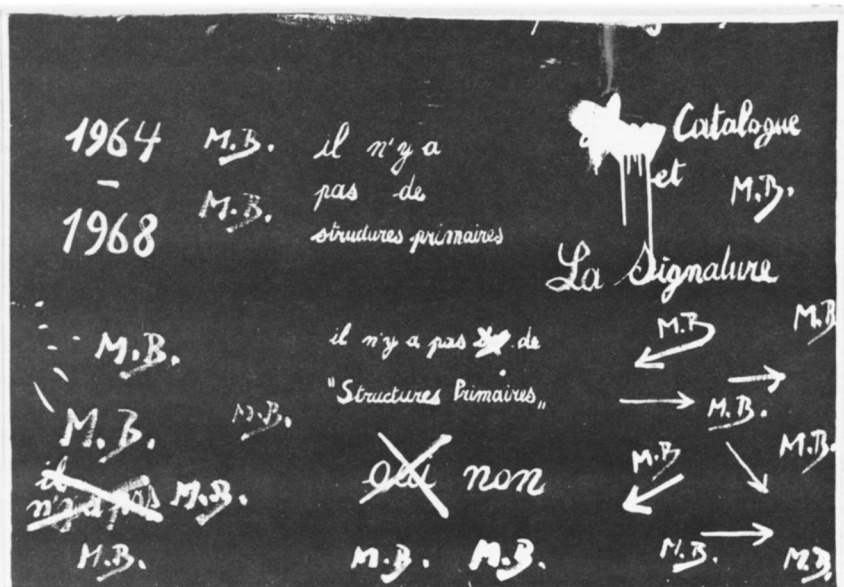 1964
–
1968
M.B.
M.B.
il n'y a
pas de
structures primaires
Catalogue
et
M.B.
La Signature
M.B.
M.B.
M.B.
il
n'y a pas
M.B.
M.B.
il n'y a pas de
"Structures Primaires"
oui non
M.B. M.B.
M.B
M.B
M.B.
M.B
M.B.
M.B.
M.B